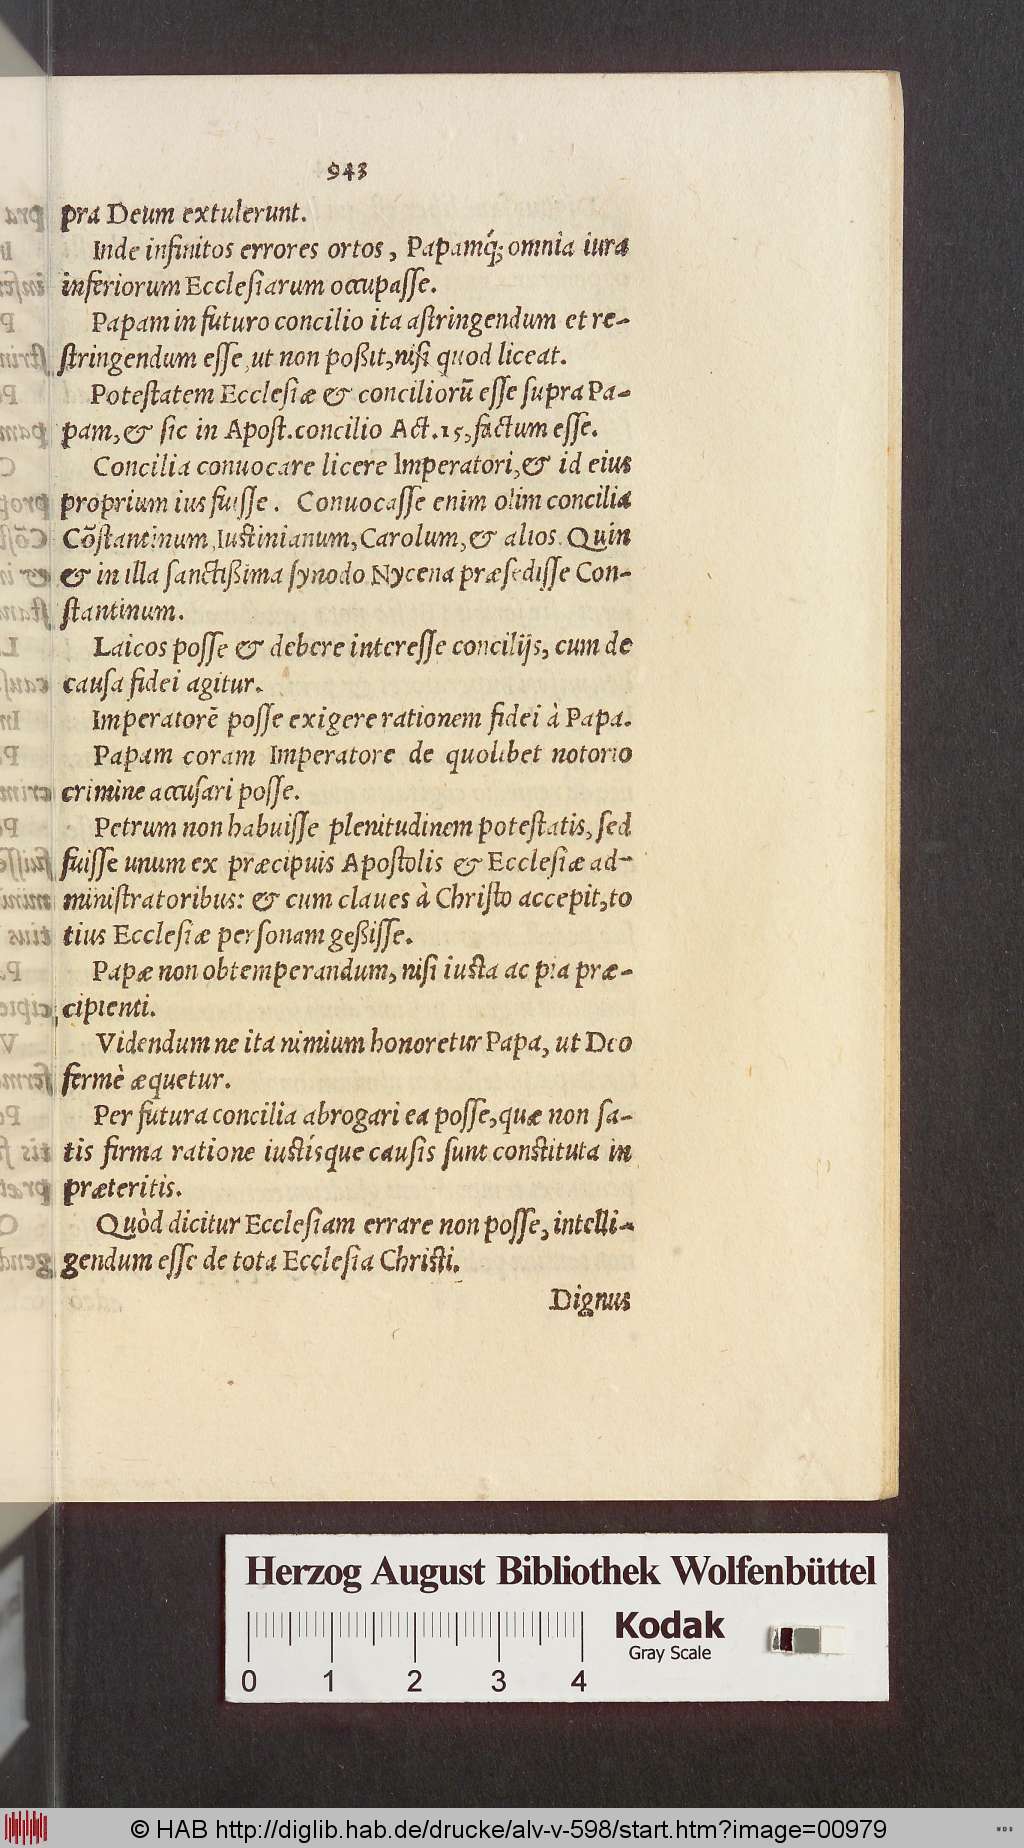 943
pra Deum extulerunt.
Inde infinitos errores ortos, Papamq́; omnia iura
inferiorum Ecclesiarum occupaſſe.
Papam in futuro concilio ita aſtringendum et re-
ſtringendum eſſe, ut non poßit, niſi quod liceat.
Poteſtatem Eccleſiæ & conciliorū eſſe ſupra Pa-
pam, & ſic in Apoſt. concilio Act. 15, factum eſſe.
Concilia conuocare licere Imperatori, & id eius
proprium ius fuiſſe. Conuocaſſe enim olim concilia
Cōſtantinum, Iuſtinianum, Carolum, & alios. Quin
& in illa ſanctißima ſynodo Nycena præſediſſe Con-
ſtantinum.
Laicos poſſe & debere intereſſe concilijs, cum de
cauſa fidei agitur.
Imperatorē poſſe exigere rationem fidei à Papa.
Papam coram Imperatore de quolibet notorio
crimine accuſari poſſe.
Petrum non habuiſſe plenitudinem poteſtatis, ſed
fuiſſe unum ex præcipuis Apoſtolis & Eccleſiæ ad-
miniſtratoribus: & cum claues à Chriſto accepit, to
tius Eccleſiæ perſonam geßiſſe.
Papæ non obtemperandum, niſi iuſta ac pia præ-
cipienti.
Videndum ne ita nimium honoretur Papa, ut Deo
fermè æquetur.
Per futura concilia abrogari ea poſſe, quæ non ſa-
tis firma ratione iuſtísque cauſis ſunt conſtituta in
præteritis.
Quòd dicitur Eccleſiam errare non poſſe, intelli-
gendum eſſe de tota Eccleſia Chriſti.
Dignus
Herzog August Bibliothek Wolfenbüttel
Kodak
Gray Scale
0 1 2 3 4
© HAB http://diglib.hab.de/drucke/alv-v-598/start.htm?image=00979